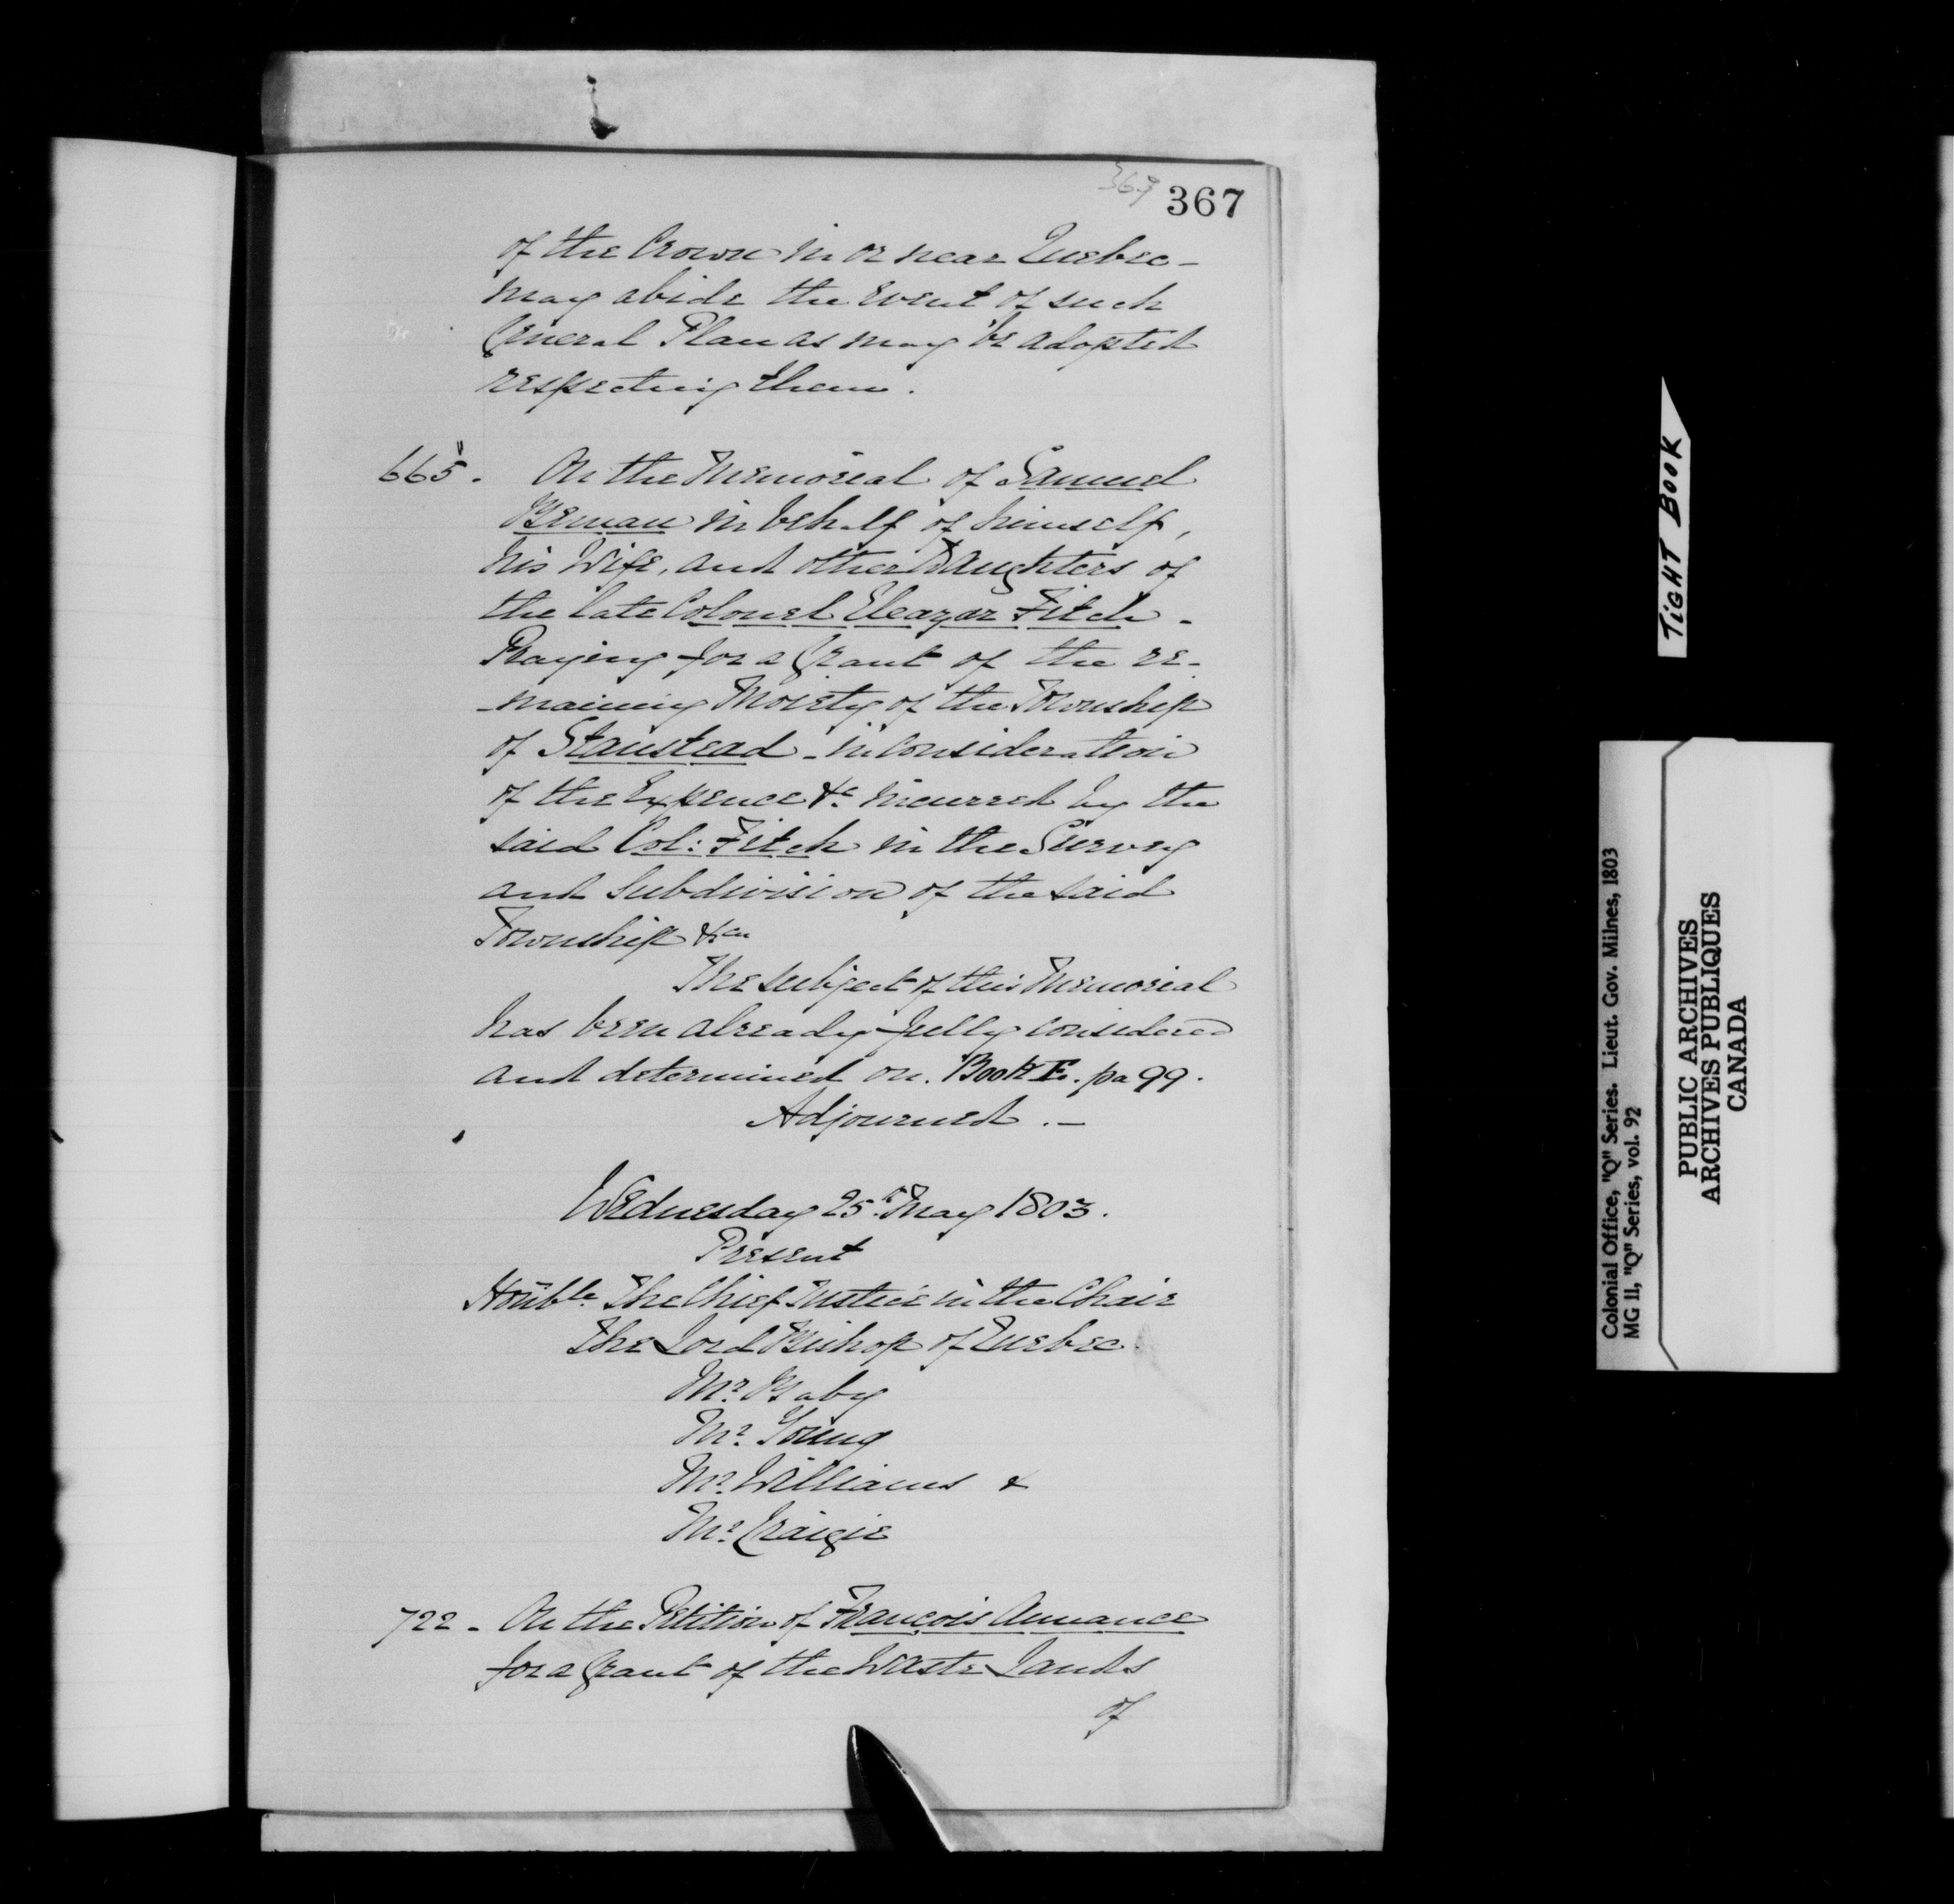 367
of the Crown in or near Quebec -
may abide the event of such
General Plan as may be adopted
respecting them.
665. On the Memorial of Samuel
Beman in behalf of himself,
his Wife, and other Daughters of
the late Colonel Eleazar Fitch -
Praying for a Grant of the re-
-maining Moiety of the Township
of Stanstead - in Consideration
of the Expence &c. incurred by the
said Col: Fitch in the Survey
and Subdivision of the said
Township &ca
The subject of this Memorial
has been already fully considered
and determined on. Book E. pa 99.
Adjourned. -
Wednesday 25th May 1803.
Present
Honble. The Chief Justice in the Chair
The Lord Bishop of Quebec
Mr. Baby
Mr. Young
Mr. Williams &
Mr. Craigie
722 - On the Petition of François Annance
for a Grant of the Waste Lands
of
TIGHT BOOK
Colonial Office, "Q" Series. Lieut. Gov. Milnes, 1803
MG 11, "Q" Series, vol. 92
PUBLIC ARCHIVES
ARCHIVES PUBLIQUES
CANADA